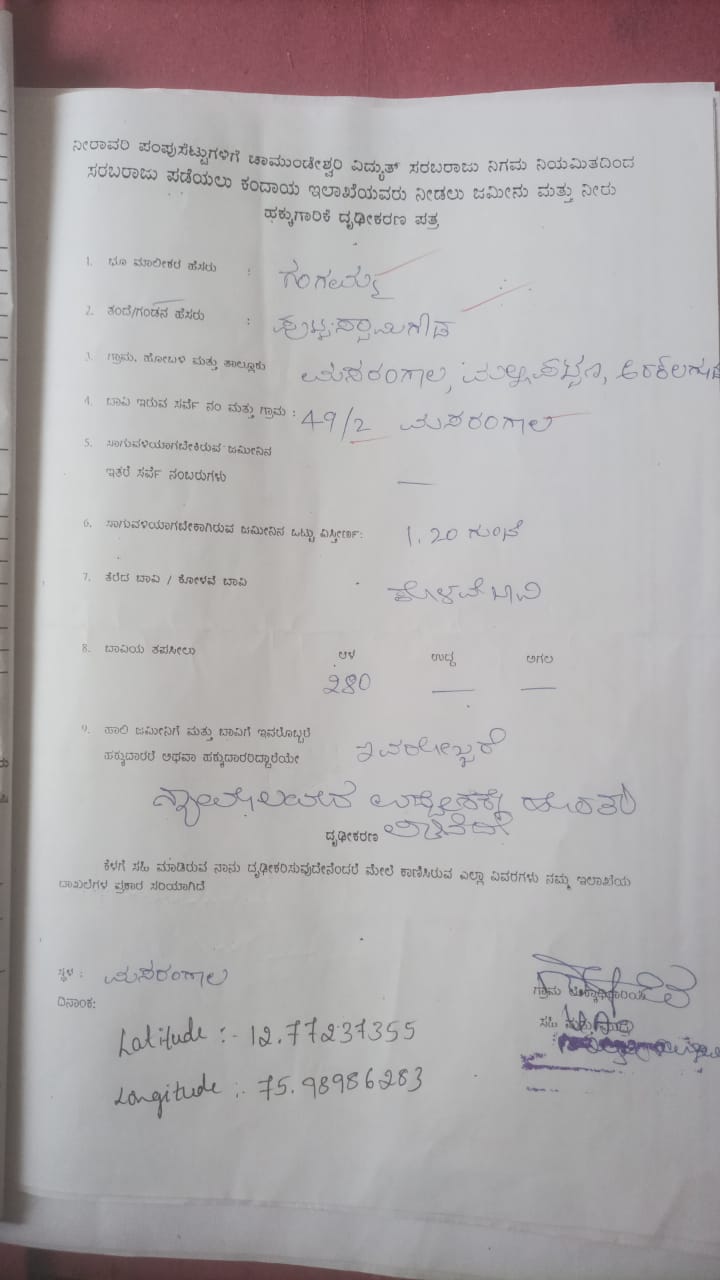 ನೀರಾವರಿ ಪಂಪುಸೆಟ್ಟುಗಳಿಗೆ ಚಾಮುಂಡೇಶ್ವರಿ ವಿದ್ಯುತ್ ಸರಬರಾಜು ನಿಗಮ ನಿಯಮಿತದಿಂದ
ಸರಬರಾಜು ಪಡೆಯಲು ಕಂದಾಯ ಇಲಾಖೆಯವರು ನೀಡಲು ಜಮೀನು ಮತ್ತು ನೀರು
ಹಕ್ಕುಗಾರಿಕೆ ದೃಢೀಕರಣ ಪತ್ರ
1. ಭೂ ಮಾಲೀಕರ ಹೆಸರು : ಗಂಗಮ್ಮ
2. ತಂದೆ/ಗಂಡನ ಹೆಸರು : ಪುಟ್ಟಸ್ವಾಮಿಗೌಡ
3. ಗ್ರಾಮ, ಹೋಬಳಿ ಮತ್ತು ತಾಲ್ಲೂಕು ಮಸರಂಗಾಲ, ಮಲ್ಲಿಪಟ್ಟಣ,
4. ಬಾವಿ ಇರುವ ಸರ್ವೆ ನಂ ಮತ್ತು ಗ್ರಾಮ : 49/2 ಮಸರಂಗಾಲ
5. ಸಾಗುವಳಿಯಾಗಬೇಕಿರುವ ಜಮೀನಿನ
ಇತರೆ ಸರ್ವೆ ನಂಬರುಗಳು —
6. ಸಾಗುವಳಿಯಾಗಬೇಕಾಗಿರುವ ಜಮೀನಿನ ಒಟ್ಟು ವಿಸ್ತೀರ್ಣ: 1.20 ಗುಂಟೆ
7. ತೆರೆದ ಬಾವಿ / ಕೋಳವೆ ಬಾವಿ ಕೊಳವೆ ಬಾವಿ
8. ಬಾವಿಯ ತಪಸೀಲು ಆಳ ಉದ್ದ ಅಗಲ
280 — —
9. ಹಾಲಿ ಜಮೀನಿಗೆ ಮತ್ತು ಬಾವಿಗೆ ಇವರೊಬ್ಬರೆ
ಹಕ್ಕುದಾರರೆ ಅಥವಾ ಹಕ್ಕುದಾರರಿದ್ದಾರೆಯೇ ಇವರೊಬ್ಬರೆ
ದೃಢೀಕರಣ
ಕೆಳಗೆ ಸಹಿ ಮಾಡಿರುವ ನಾನು ದೃಢೀಕರಿಸುವುದೇನೆಂದರೆ ಮೇಲೆ ಕಾಣಿಸಿರುವ ಎಲ್ಲಾ ವಿವರಗಳು ನಮ್ಮ ಇಲಾಖೆಯ
ದಾಖಲೆಗಳ ಪ್ರಕಾರ ಸರಿಯಾಗಿದೆ
ಸ್ಥಳ : ಮಸರಂಗಾಲ
ದಿನಾಂಕ:
ಗ್ರಾಮ
ಸಹಿ
Latitude :- 12.77237355
Longitude :- 75.98986283